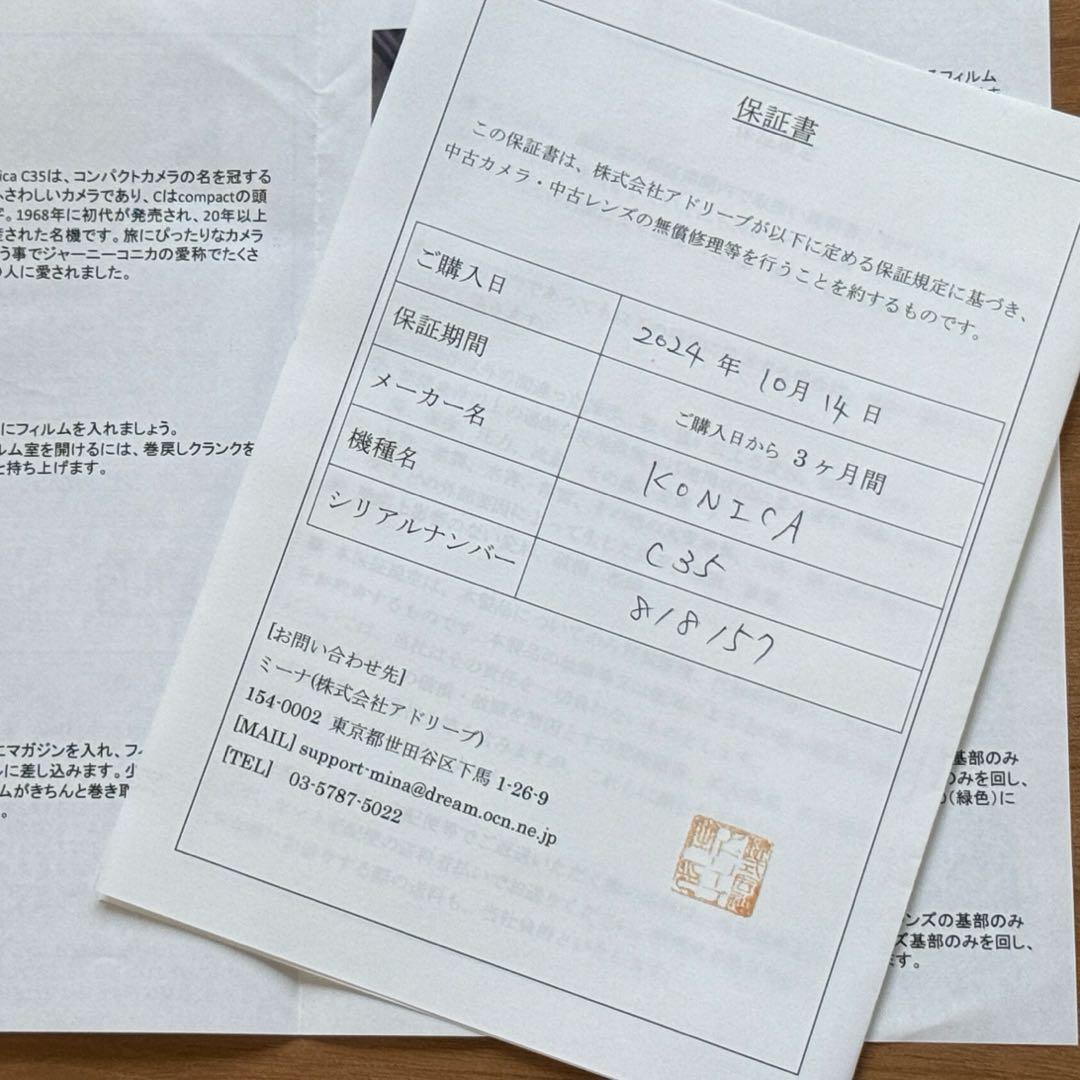 保証書
この保証書は、株式会社アドリーブが以下に定める保証規定に基づき、
中古カメラ・中古レンズの無償修理等を行うことを約するものです。
ご購入日 2024年10月14日
保証期間 ご購入日から3ヶ月間
メーカー名 KONICA
機種名 C35
シリアルナンバー 818157
[お問い合わせ先]
ミーナ(株式会社アドリーブ)
154-0002 東京都世田谷区下馬 1-26-9
[MAIL] support-mina@dream.ocn.ne.jp
[TEL] 03-5787-5022
ica C35は、コンパクトカメラの名を冠する
ふさわしいカメラであり、Cはcompactの頭
字。1968年に初代が発売され、20年以上
産された名機です。旅にぴったりなカメラ
う事でジャーニーコニカの愛称でたくさ
の人に愛されました。
にフィルムを入れましょう。
ルム室を開けるには、巻戻しクランクを
と持ち上げます。
にマガジンを入れ、フ
ルに差し込みます。少
ムがきちんと巻き取
。
フィルム
基部のみ
のみを回し、
(緑色)に
ンズの基部のみ
ズ基部のみを回し、
ます。